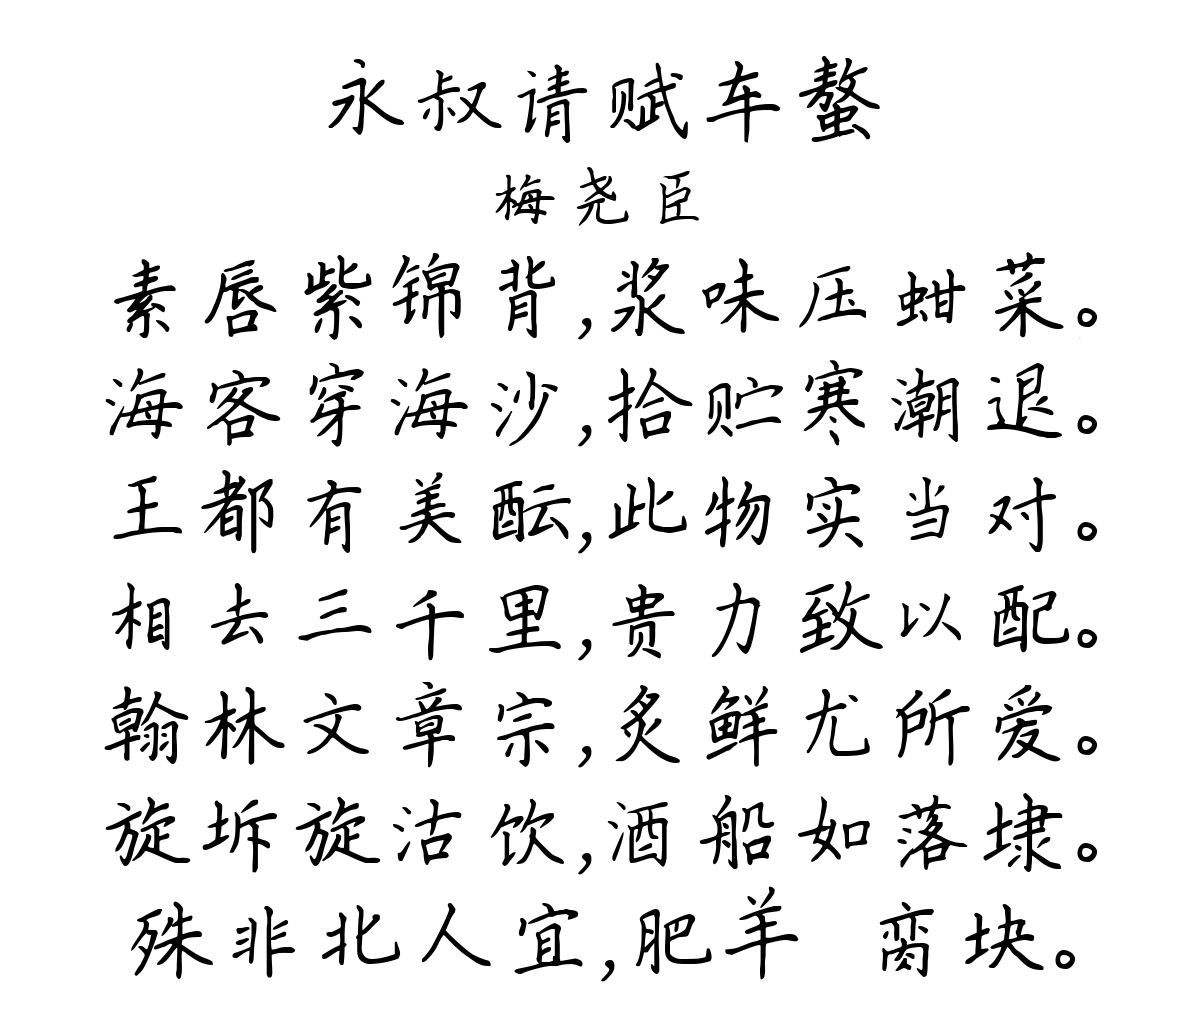 永叔请赋车螯
梅尧臣
素唇紫锦背,浆味压蚶菜。
海客穿海沙,拾贮寒潮退。
王都有美酝,此物实当对。
相去三千里,贵力致以配。
翰林文章宗,炙鲜尤所爱。
旋坼旋沽饮,酒船如落埭。
殊非北人宜,肥羊 脔块。